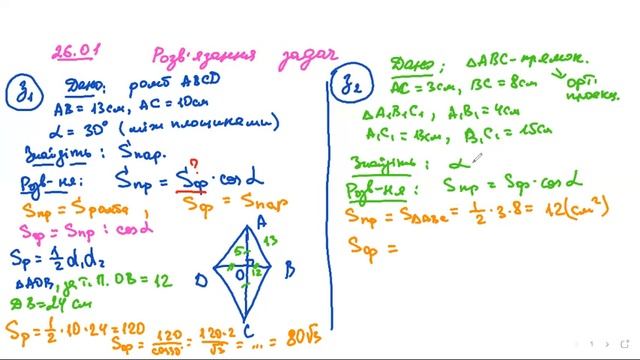 26.01 Розв'язання задач
З1
Дано: ромб ABCD
AB = 13см, AC = 10см
α = 30° (між площинами)
Знайдіть: Sпар.
Розв-ня: Sпр = Sф?·cosα
Sпр = Sромба, Sф = Sпар
Sф = Sпр : cosα
Sр = 1/2 d₁d₂
ΔAOB, за т. П. OB = 12
DB = 24 см
Sр = 1/2·10·24 = 120
Sф = 120/cos30° = 120·2/√3 = ... = 80√3
A
5 13
D O 12 B
C
З2
Дано: ΔABC - прямок.
AC = 3см, BC = 8см
орт. проекц.
ΔA₁B₁C₁, A₁B₁ = 4см
A₁C₁ = 13см, B₁C₁ = 15см
Знайдіть: α
Розв-ня: Sпр = Sф·cosα
Sпр = SΔABC = 1/2·3·8 = 12(см²)
Sф =
1